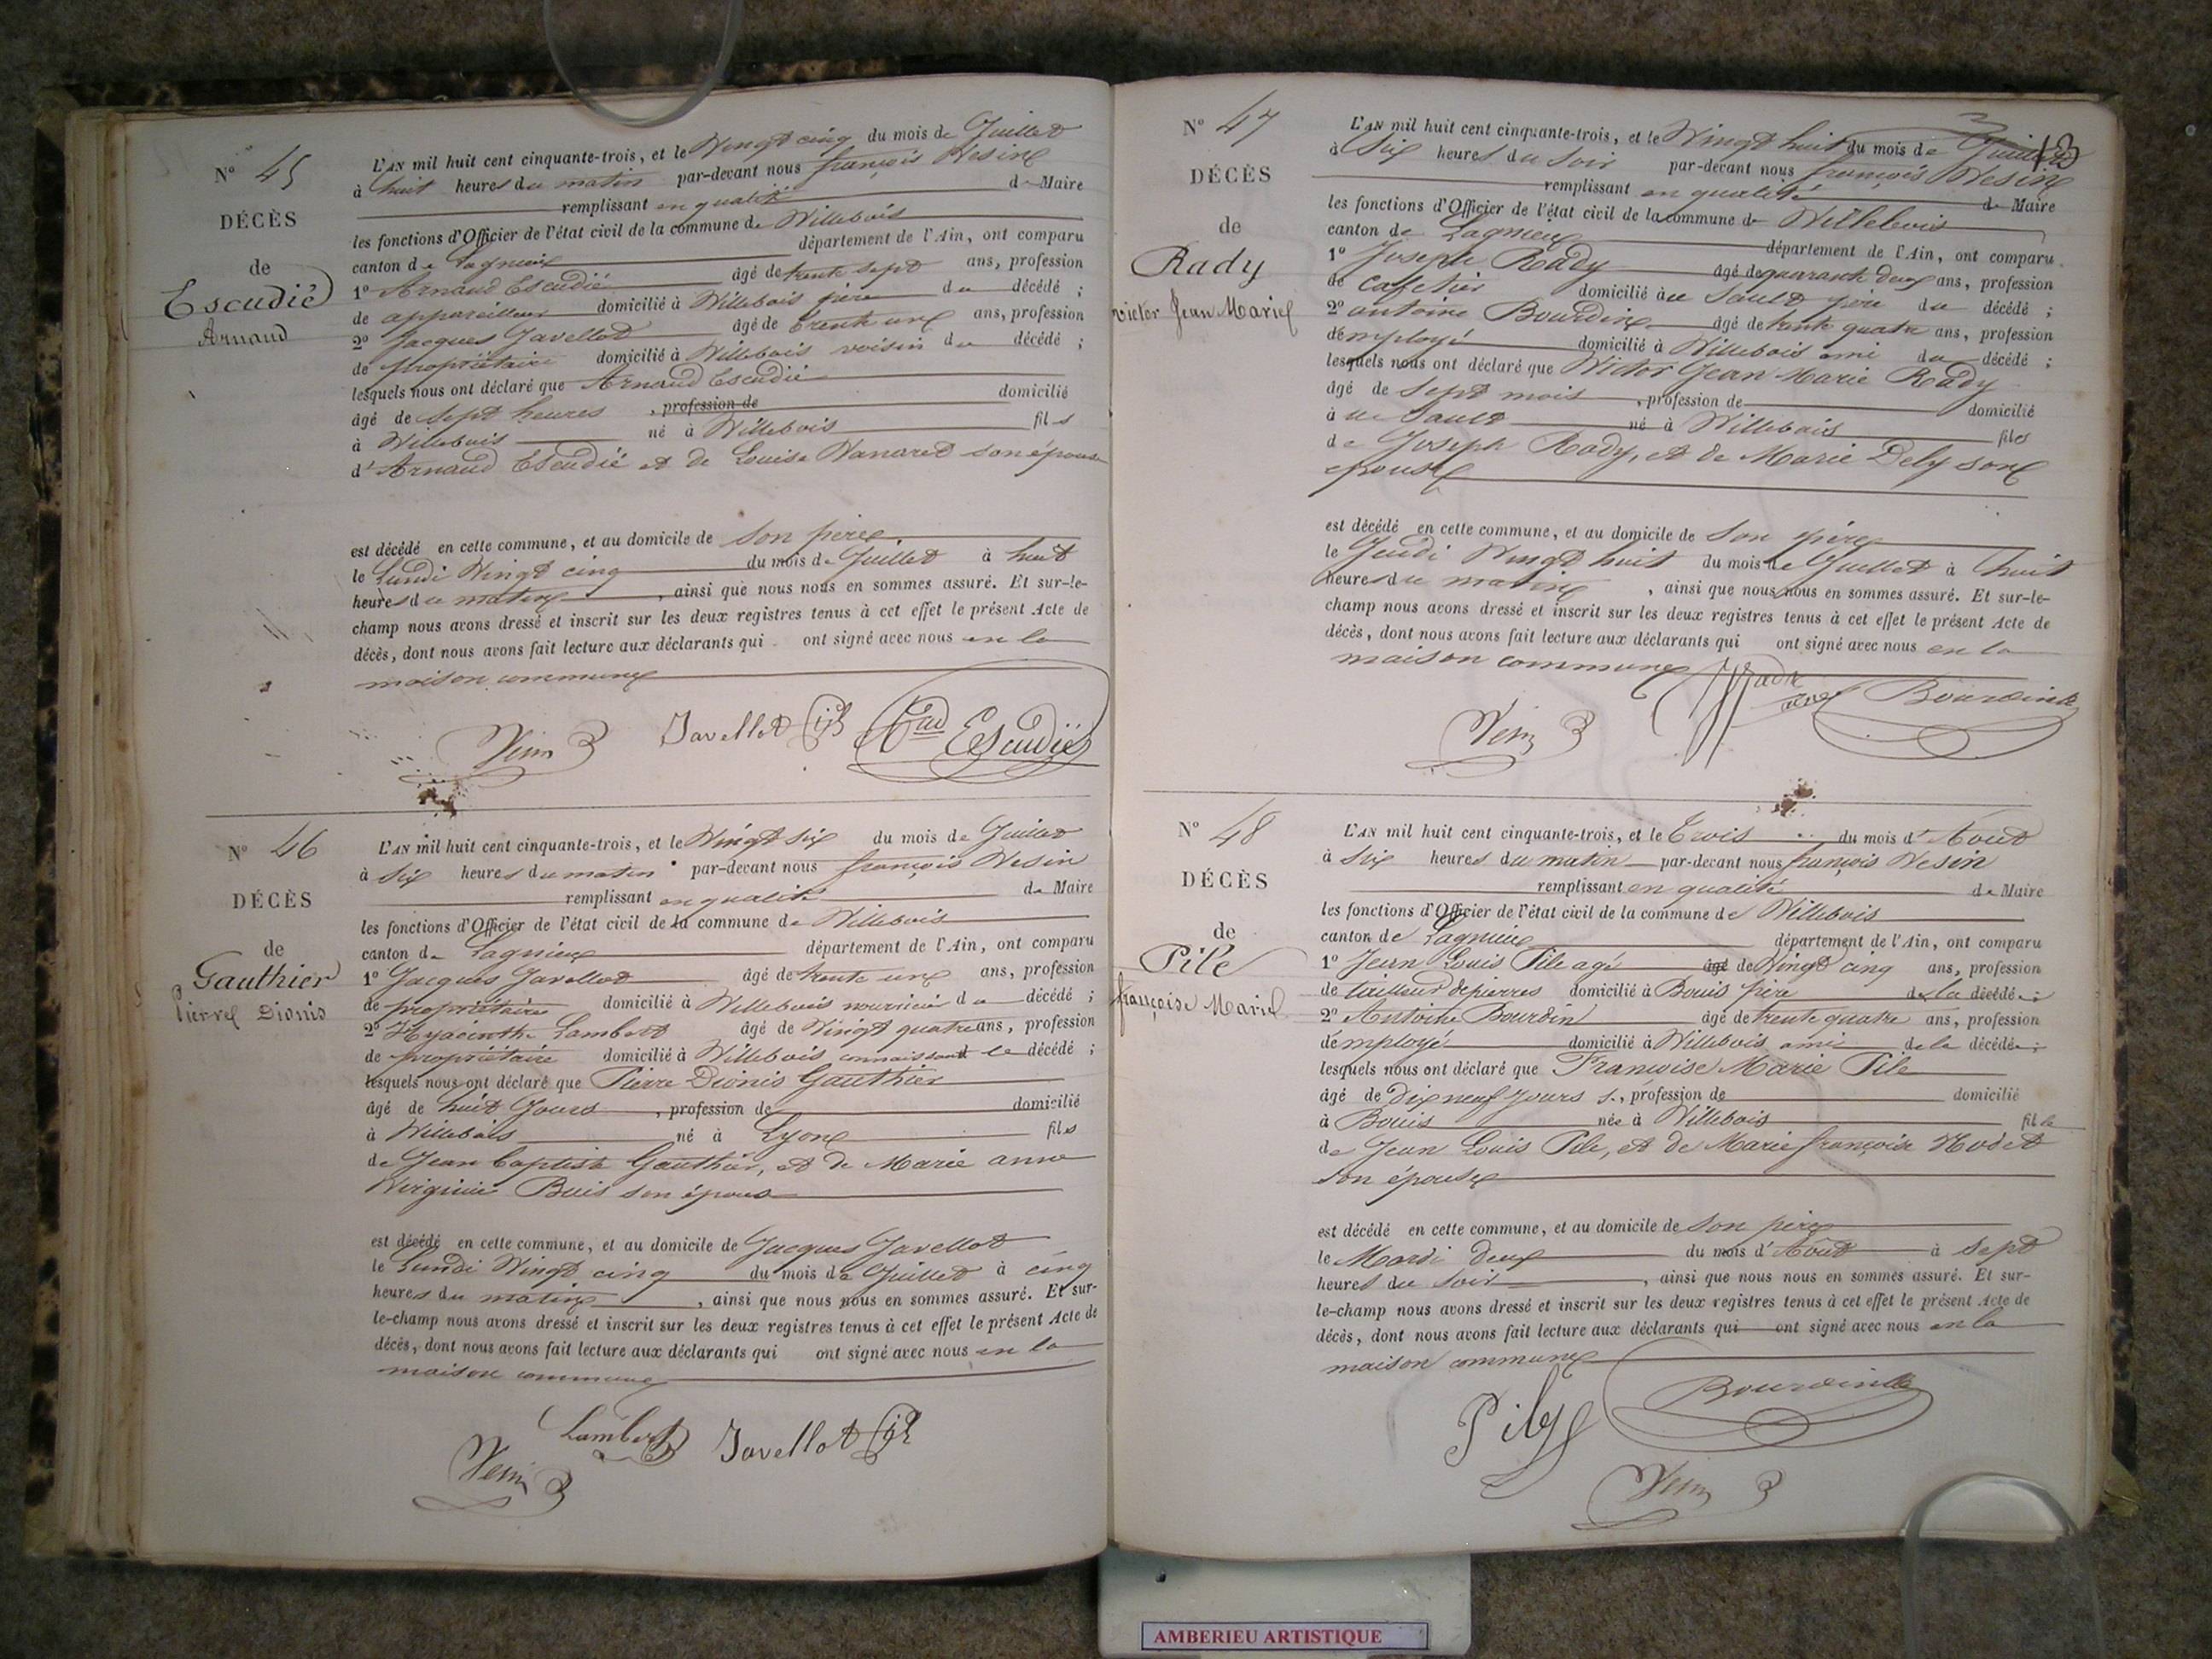 N° 45
DÉCÈS
de
Escudié
Arnaud
L'AN mil huit cent cinquante-trois, et le Vingt cinq du mois de Juillet
à huit heures du matin par-devant nous françois Vesin
remplissant en qualité de Maire
les fonctions d'Officier de l'état civil de la commune de Villebois
canton de Lagnieu département de l'Ain, ont comparu
1° Arnaud Escudié âgé de trente sept ans, profession
de appareilleur domicilié à Villebois père du décédé ;
2° Jacques Javellot âgé de trente un ans, profession
de propriétaire domicilié à Villebois voisin du décédé ;
lesquels nous ont déclaré que Arnaud Escudié
âgé de sept heures , profession de domicilié
à Villebois né à Villebois fils
d'Arnaud Escudié et de Louise Vanaret son épouse
est décédé en cette commune, et au domicile de son père
le Lundi Vingt cinq du mois de Juillet à huit
heures du matin , ainsi que nous nous en sommes assuré. Et sur-le-
champ nous avons dressé et inscrit sur les deux registres tenus à cet effet le présent Acte de
décès, dont nous avons fait lecture aux déclarants qui ont signé avec nous en la
maison commune
Vesin Javellot Escudié
N° 46
DÉCÈS
de
Gauthier
Pierre Dionis
L'AN mil huit cent cinquante-trois, et le Vingt six du mois de Juillet
à six heures du matin par-devant nous françois Vesin
remplissant en qualité de Maire
les fonctions d'Officier de l'état civil de la commune de Villebois
canton de Lagnieu département de l'Ain, ont comparu
1° Jacques Javellot âgé de trente un ans, profession
de propriétaire domicilié à Villebois nourricier du décédé ;
2° Hyacinthe Lambert âgé de Vingt quatre ans, profession
de propriétaire domicilié à Villebois connaissant le décédé ;
lesquels nous ont déclaré que Pierre Dionis Gauthier
âgé de huit Jours , profession de domicilié
à Villebois né à Lyon fils
de Jean Baptiste Gauthier, et de Marie anne
Virginie Buis son épouse
est décédé en cette commune, et au domicile de Jacques Javellot
le Lundi Vingt cinq du mois de Juillet à cinq
heures du matin , ainsi que nous nous en sommes assuré. Et sur-
le-champ nous avons dressé et inscrit sur les deux registres tenus à cet effet le présent Acte de
décès, dont nous avons fait lecture aux déclarants qui ont signé avec nous en la
maison commune
Lambert Javellot
Vesin
13
N° 47
DÉCÈS
de
Rady
victor Jean Marie
L'AN mil huit cent cinquante-trois, et le Vingt huit du mois de Juillet
à Six heures du soir par-devant nous françois Vesin
remplissant en qualité de Maire
les fonctions d'Officier de l'état civil de la commune de Villebois
canton de Lagnieu département de l'Ain, ont comparu
1° Joseph Rady âgé de quarante deux ans, profession
de Cafetier domicilié à Sault père du décédé ;
2° antoine Bourdin âgé de trente quatre ans, profession
d'employé domicilié à Villebois ami du décédé ;
lesquels nous ont déclaré que Victor Jean Marie Rady
âgé de sept mois , profession de domicilié
à Sault né à Villebois fils
de Joseph Rady, et de Marie Dely son
épouse
est décédé en cette commune, et au domicile de son père
le Jeudi Vingt huit du mois de Juillet à huit
heures du matin , ainsi que nous nous en sommes assuré. Et sur-le-
champ nous avons dressé et inscrit sur les deux registres tenus à cet effet le présent Acte de
décès, dont nous avons fait lecture aux déclarants qui ont signé avec nous en la
maison commune
Vesin Bourdin
N° 48
DÉCÈS
de
Pile
françoise Marie
L'AN mil huit cent cinquante-trois, et le Trois du mois d'Aout
à six heures du matin par-devant nous françois Vesin
remplissant en qualité de Maire
les fonctions d'Officier de l'état civil de la commune de Villebois
canton de Lagnieu département de l'Ain, ont comparu
1° Jean Louis Pile agé âgé de Vingt cinq ans, profession
de tailleur de pierres domicilié à Bouis père de la décédée ;
2° Antoine Bourdin âgé de trente quatre ans, profession
d'employé domicilié à Villebois ami de la décédée ;
lesquels nous ont déclaré que Françoise Marie Pile
âgé de Dix neuf Jours , profession de domicilié
à Bouis née à Villebois fille
de Jean Louis Pile, et de Marie françoise Nodet
son épouse
est décédé en cette commune, et au domicile de son père
le Mardi deux du mois d'Aout à sept
heures du soir , ainsi que nous nous en sommes assuré. Et sur-
le-champ nous avons dressé et inscrit sur les deux registres tenus à cet effet le présent Acte de
décès, dont nous avons fait lecture aux déclarants qui ont signé avec nous en la
maison commune
Pile Bourdin
Vesin
AMBERIEU ARTISTIQUE